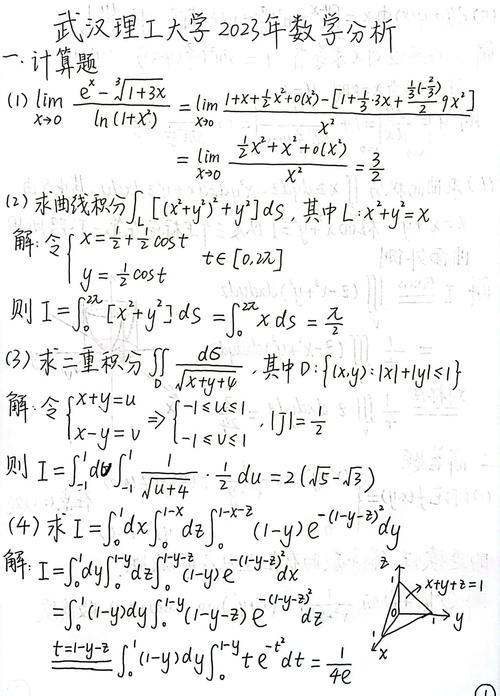 武汉理工大学2023年数学分析
一.计算题
(1) lim_{x→0} (e^x - ∛(1+3x)) / ln(1+x²) = lim_{x→0} (1+x+½x²+o(x²)-[1+⅓·3x+(⅓(-⅔)/2)9x²]) / x²
= lim_{x→0} (½x²+x²+o(x²)) / x² = 3/2
(2) 求曲线积分∫_L [(x²+y²)²+y²]ds, 其中L:x²+y²=x
解:令 { x=½+½cost
y=½cost t∈[0,2π]
则 I=∫_0^{2π} [x²+y²]ds =∫_0^{2π} x ds = π/2
(3) 求二重积分 ∬_D dσ/√(x+y+4), 其中D:{(x,y):|x|+|y|≤1}
解:令 { x+y=u ⇒ { -1≤u≤1
x-y=v -1≤v≤1 , |J|=½
则 I=∫_{-1}^1 dv∫_{-1}^1 1/√(u+4) · ½ du = 2(√5-√3)
(4) 求 I=∫_0^1 dx∫_0^{1-x} dz∫_0^{1-x-z} (1-y)e^{-(1-y-z)²}dy
解: I=∫_0^1 dy∫_0^{1-y} dz∫_0^{1-y-z} (1-y)e^{-(1-y-z)²}dx
=∫_0^1 (1-y)dy∫_0^{1-y} (1-y-z)e^{-(1-y-z)²}dz
t=1-y-z ∫_0^1 (1-y)dy∫_0^{1-y} te^{-t²}dt = 1/4e
z
x+y+z=1
1
0
1
y
1
x
1